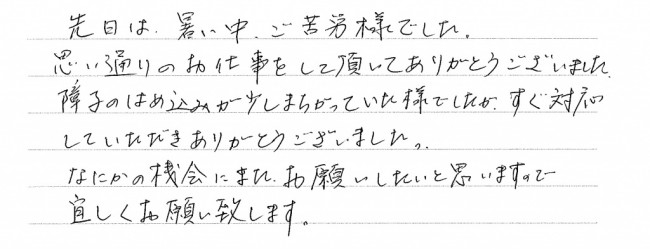 先日は、暑い中、ご苦労様でした。
思い通りのお仕事をして頂いてありがとうございました。
障子のはめ込みが少しまちがっていた様でしたが、すぐ対応
していただきありがとうございました。
なにかの機会にまた、お願いしたいと思いますので
宜しくお願い致します。